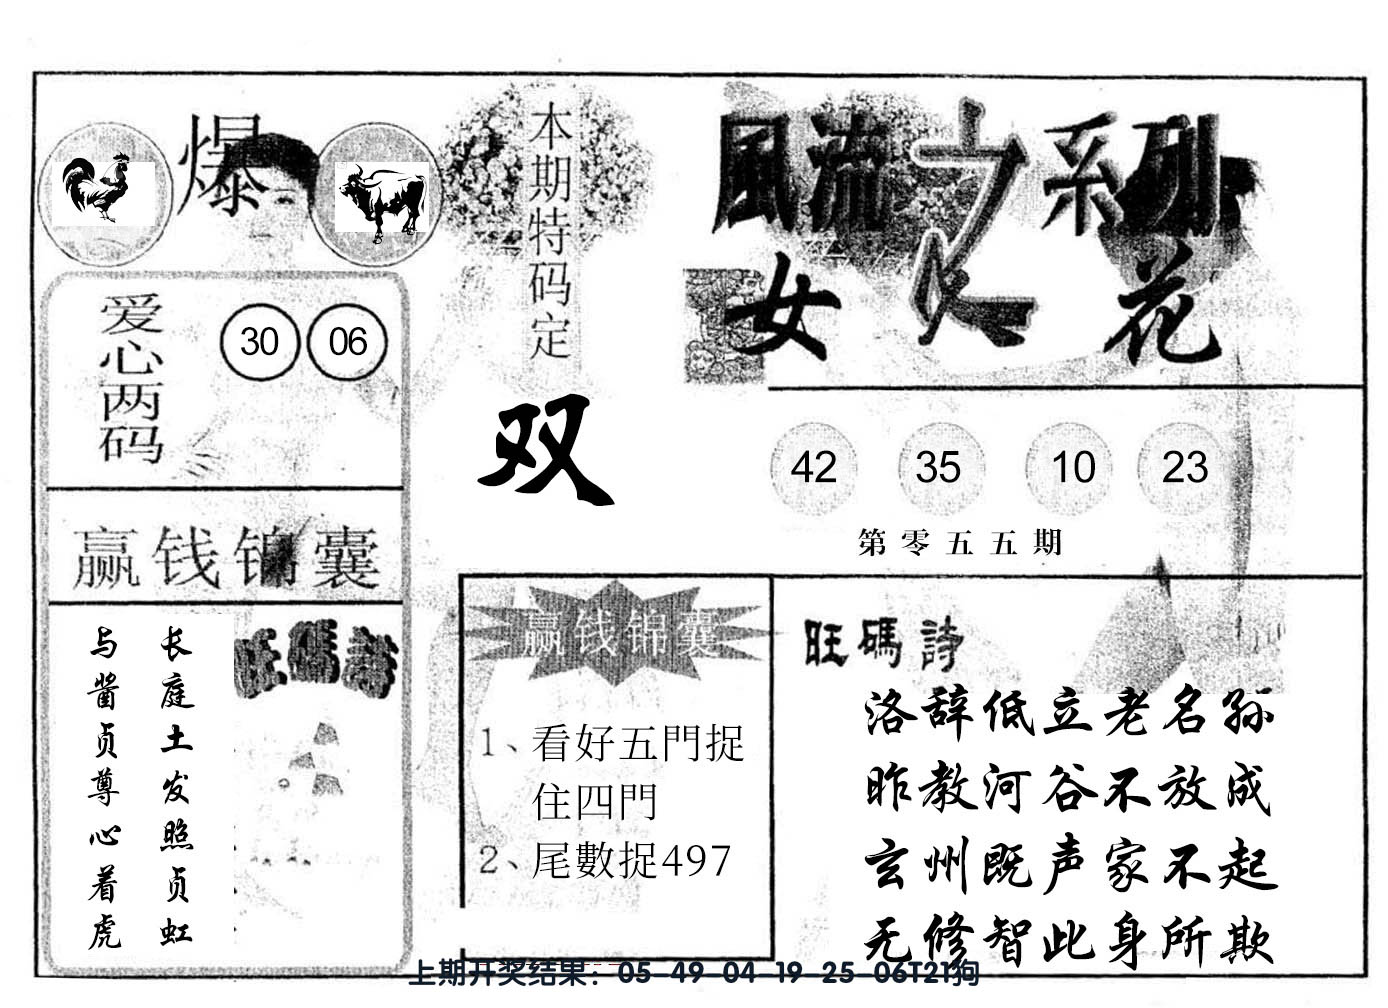 爆
本期特码定
双
風流之系列
女人花
爱心两码
30 06
42 35 10 23
第零五五期
赢钱锦囊
长庭土发照贞虹
与酱贞尊心着虎
旺碼詩
赢钱锦囊
1、看好五門捉
住四門
2、尾數捉497
旺碼詩
洛辞低立老名孙
昨教河谷不放成
玄州既声家不起
无修智此身所欺
上期开奖结果：05-49-04-19-25-06T21狗